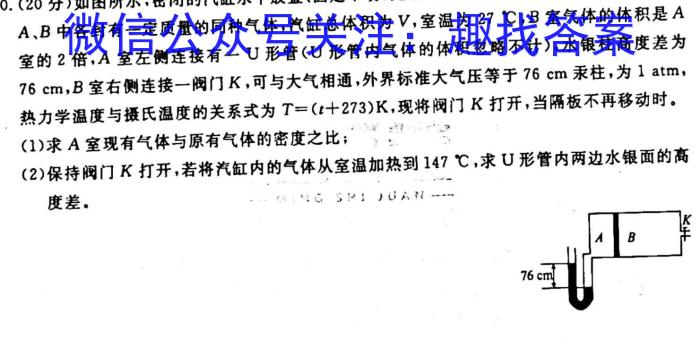 0.(20分)如图所示,密闭的汽缸水平放置
A、B中各封有一定质量的同种气体,汽缸总体积为V,室温为27℃,B室气体的体积是A
室的2倍,A室左侧连接有一U形管(U形管内气体的体积忽略不计),水银柱高度差为
微信公众号关注:趣找答案
76 cm,B室右侧连接一阀门K,可与大气相通,外界标准大气压等于76 cm汞柱,为1 atm,
热力学温度与摄氏温度的关系式为T=(t+273)K,现将阀门K打开,当隔板不再移动时。
(1)求A室现有气体与原有气体的密度之比;
(2)保持阀门K打开,若将汽缸内的气体从室温加热到147℃,求U形管内两边水银面的高
度差。
K
A B
76 cm